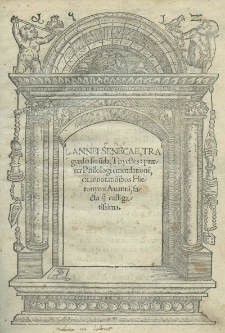 L. ANNEI SENECAE, TRA
goedia secūda, Thyestes: præ
ter Philologi emendationē,
ex annotatiōibus Hie
ronymi Auantii, fa
cta q̃ castiga
tissima.